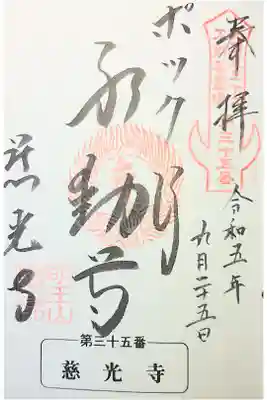 奉拝
令和五年
九月二十五日
ポックリ
不動尊
慈光寺
第三十五番
慈光寺